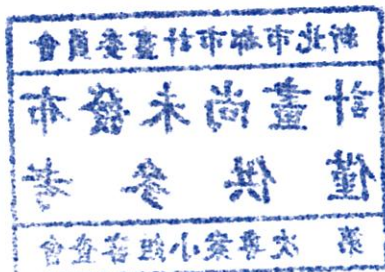 新北市都市計畫委員會
計畫尚未發布
僅供參考
第 次專案小組審查會